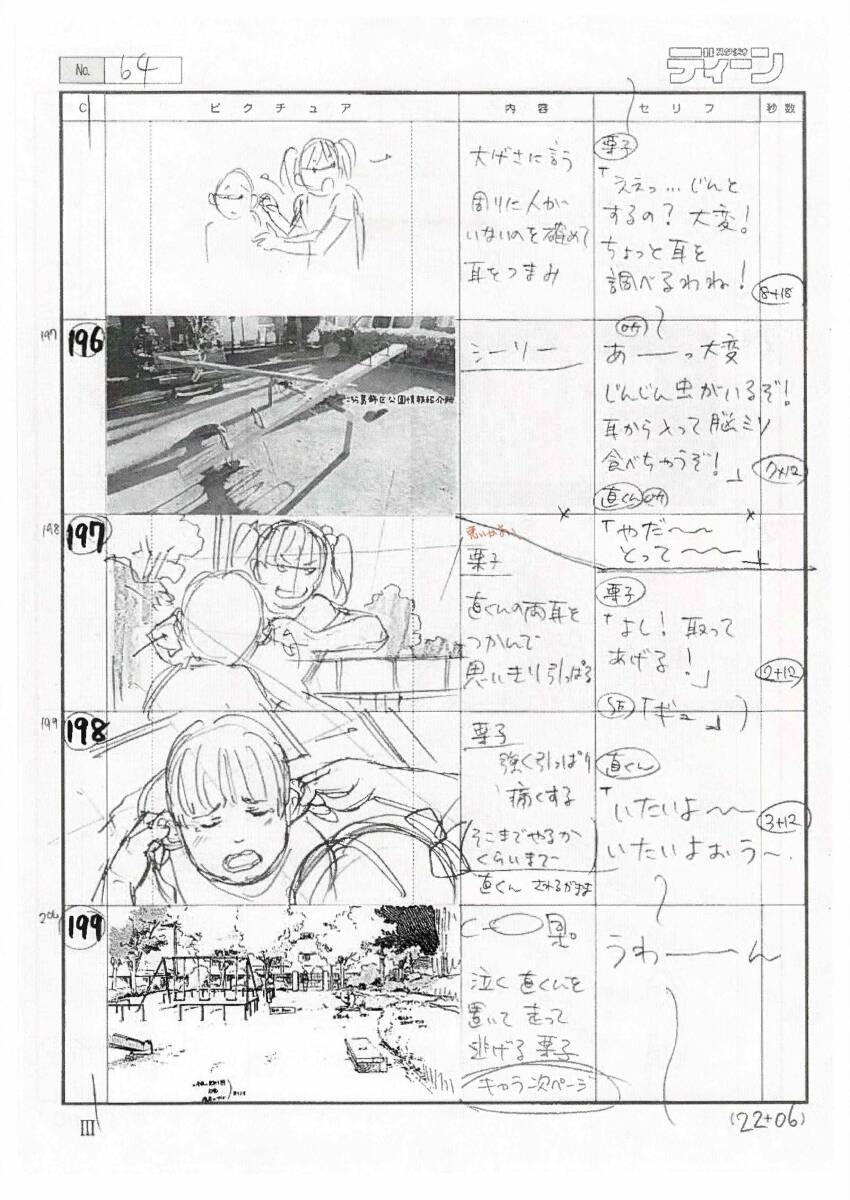 No. 64
スタジオ
ディーン
C ピクチュア 内容 セリフ 秒数
大げさに言う
周りに人が
いないのを確めて
耳をつまみ
栗子
「ええっ…じんと
するの？大変！
ちょっと耳を
調べるわね！
8+18
197
196
シーソー
off
あーっ大変
じんじん虫がいるぞ！
耳から入って脳ミソ
食べちゃうぞ！」
7+12
直くん off
「やだ〜〜
とって〜〜」
198
197
栗子
直くんの両耳を
つかんで
思いきり引っぱる
栗子
「よし！取って
あげる！」
2+12
SE「ギュ」
199
198
栗子
強く引っぱり
痛くする
そこまでやるか
くらいまで
直くん されるがまま
直くん
「いたいよ〜〜
いたいよおぅ〜
3+12
200
199
泣く直くんを
置いて走って
逃げる栗子
キャラ次ページ
うわーーん
III
(22+06)